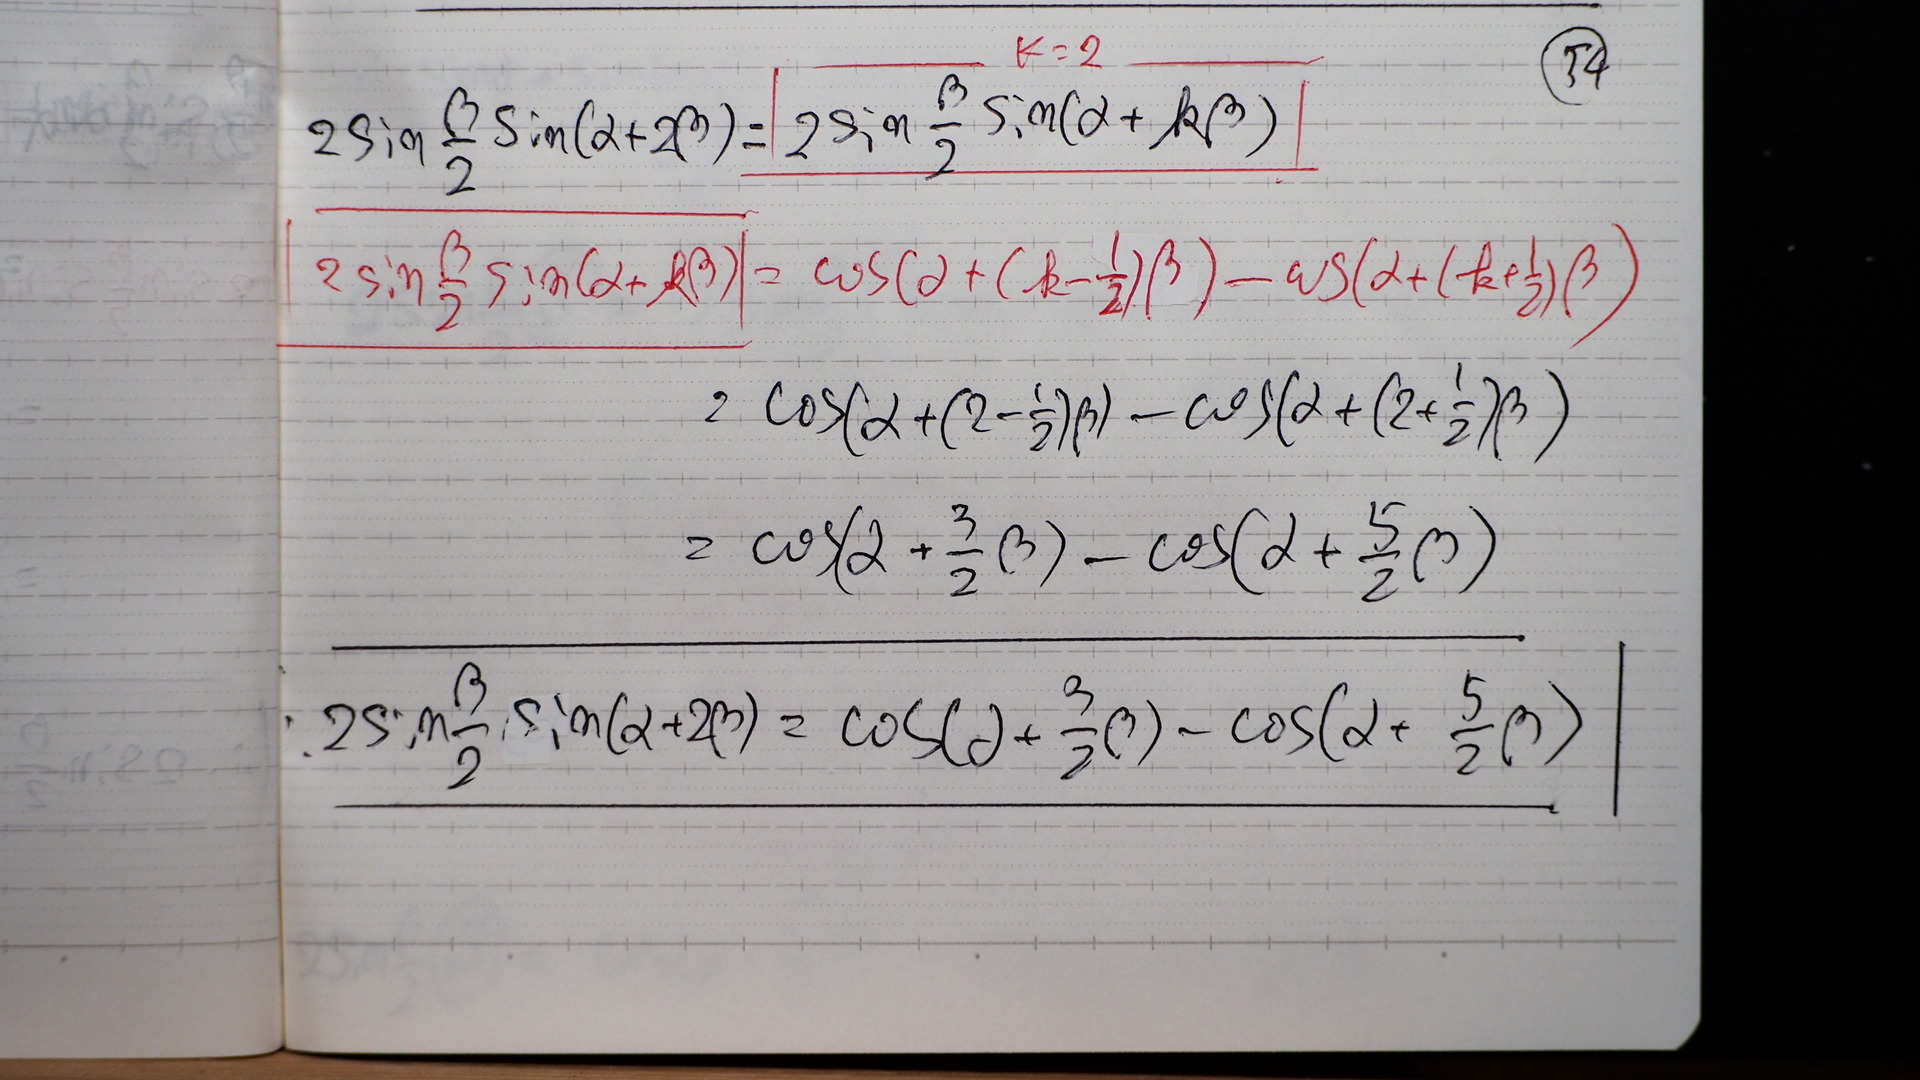 K=2
54
2 sin β/2 sin(α+2β) = 2 sin β/2 sin(α+kβ)
2 sin β/2 sin(α+kβ) = cos(α+(k-1/2)β) - cos(α+(k+1/2)β)
= cos(α+(2-1/2)β) - cos(α+(2+1/2)β)
= cos(α+3/2β) - cos(α+5/2β)
∴ 2 sin β/2 sin(α+2β) = cos(α+3/2β) - cos(α+5/2β)